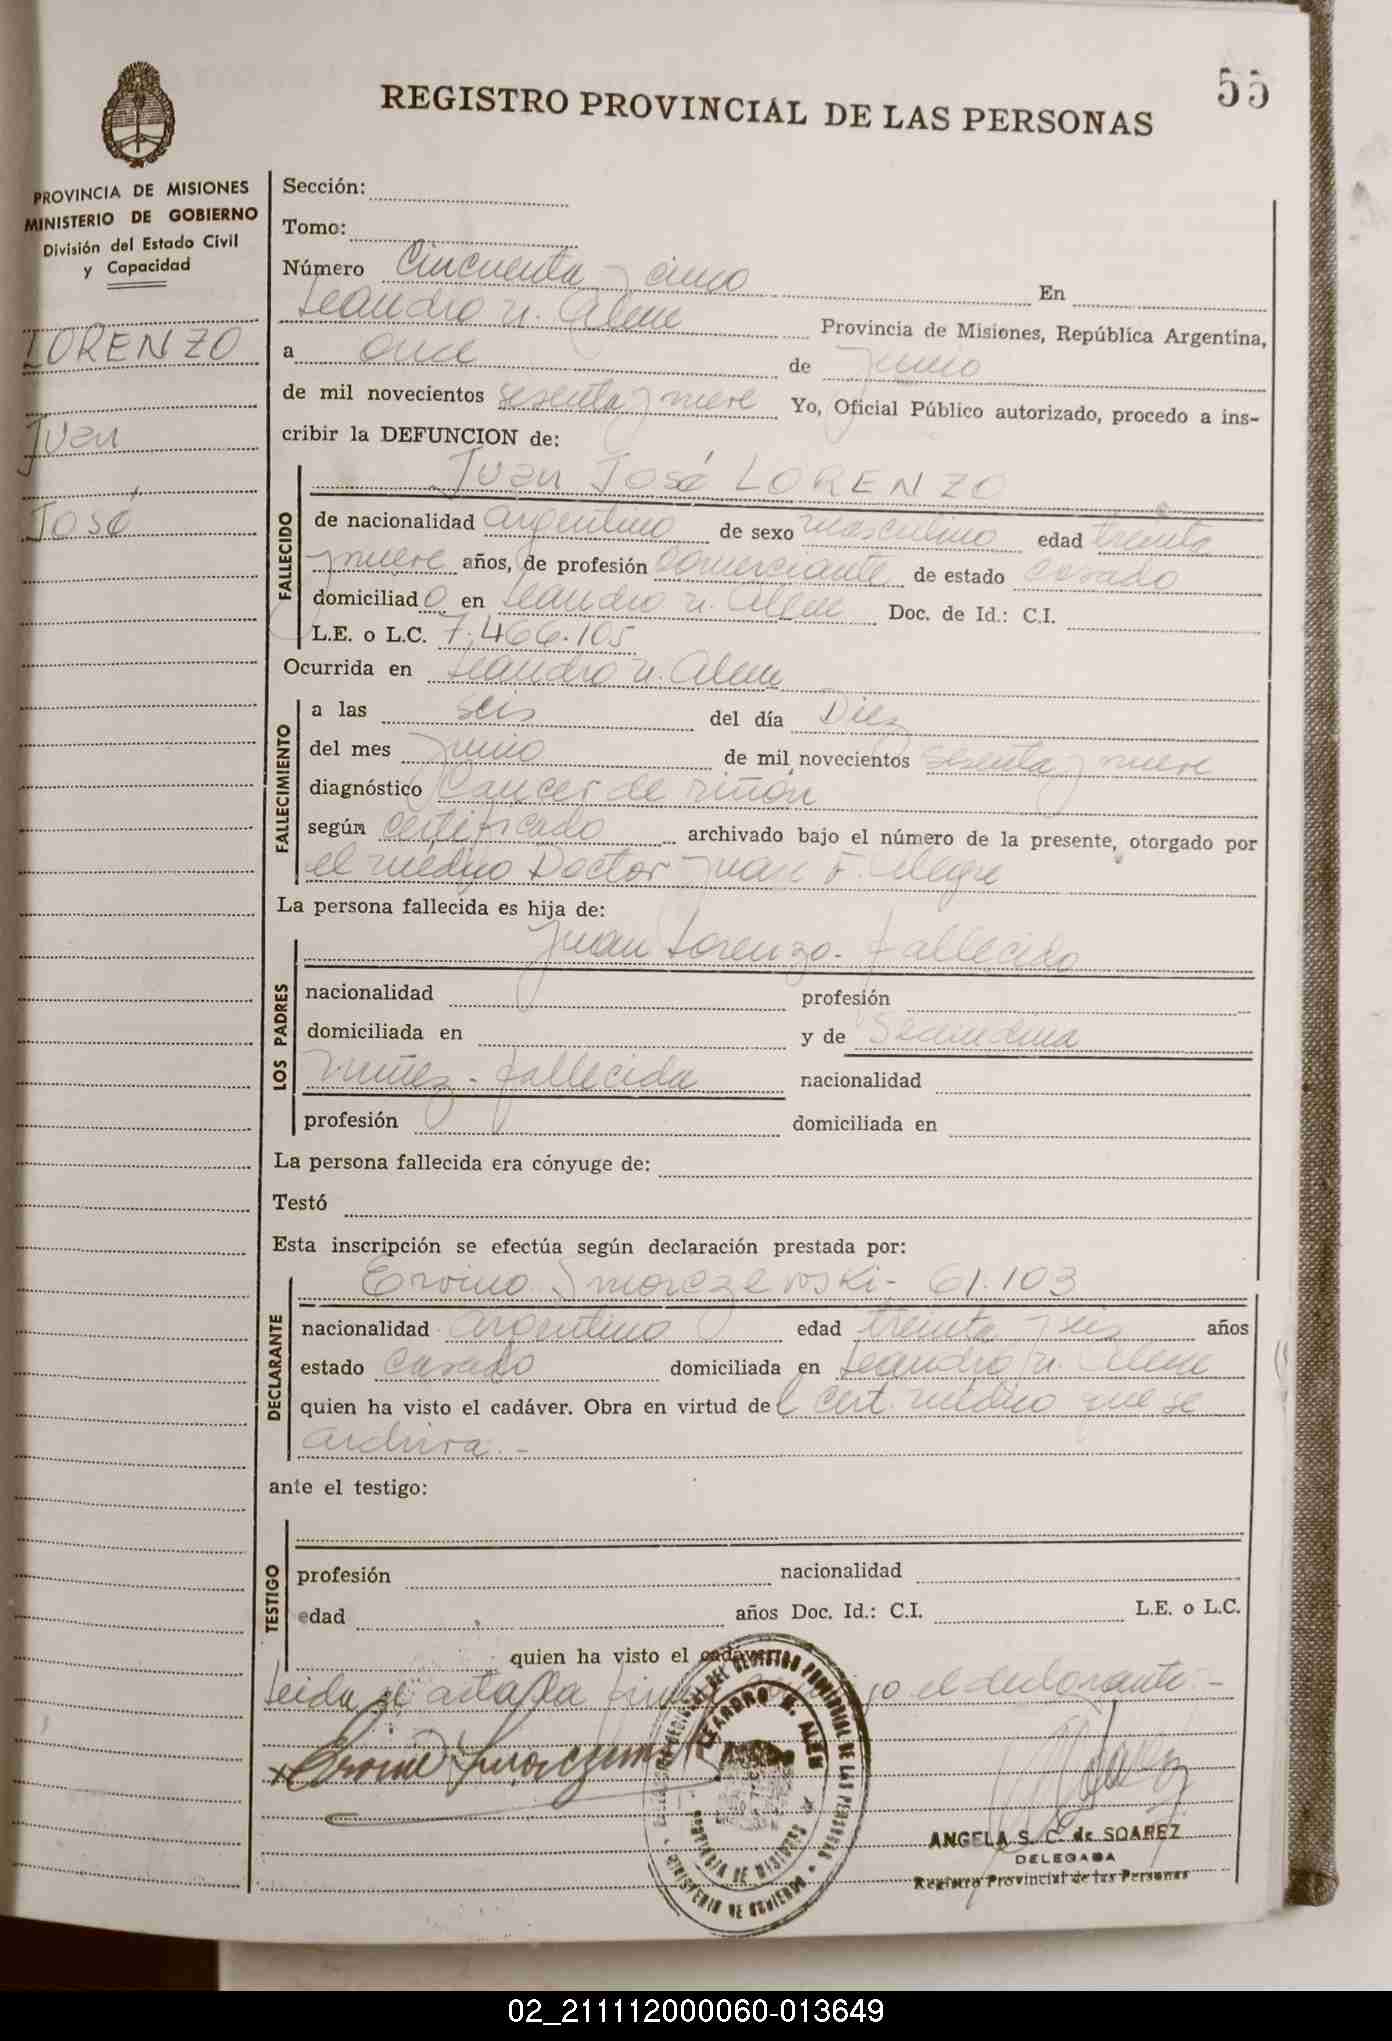 55
REGISTRO PROVINCIAL DE LAS PERSONAS
PROVINCIA DE MISIONES
MINISTERIO DE GOBIERNO
División del Estado Civil
y Capacidad
LORENZO
Juan
José
Sección:
Tomo:
Número Cincuenta y cinco En
Leandro N. Alem Provincia de Misiones, República Argentina,
a once de junio
de mil novecientos sesenta y nueve Yo, Oficial Público autorizado, procedo a ins-
cribir la DEFUNCION de:
Juan José LORENZO
FALLECIDO
de nacionalidad argentino de sexo masculino edad treinta
y nueve años, de profesión comerciante de estado casado
domiciliado en Leandro N. Alem Doc. de Id.: C.I.
L.E. o L.C. 7.466.105
Ocurrida en Leandro N. Alem
FALLECIMIENTO
a las seis del día Diez
del mes junio de mil novecientos sesenta y nueve
diagnóstico Cancer de riñón
según certificado archivado bajo el número de la presente, otorgado por
el médico Doctor Juan F. Alegre
La persona fallecida es hija de:
LOS PADRES
Juan Lorenzo - fallecido
nacionalidad profesión
domiciliada en y de Secundina
Muñez - fallecida nacionalidad
profesión domiciliada en
La persona fallecida era cónyuge de:
Testó
Esta inscripción se efectúa según declaración prestada por:
DECLARANTE
Ervino Smorczewski - 61.103
nacionalidad argentino edad treinta y seis años
estado casado domiciliada en Leandro N. Alem
quien ha visto el cadáver. Obra en virtud del cert. médico que se
archiva.-
ante el testigo:
TESTIGO
profesión nacionalidad
edad años Doc. Id.: C.I. L.E. o L.C.
quien ha visto el cadáver
Leida el acta la el declarante.-
LEANDRO N. ALEM
PROVINCIA DE MISIONES
MINISTERIO DE GOBIERNO
DEL REGISTRO PROVINCIAL DE LAS PERSONAS
ANGELA S. C. de SOAREZ
DELEGADA
Registro Provincial de las Personas
02_211112000060-013649